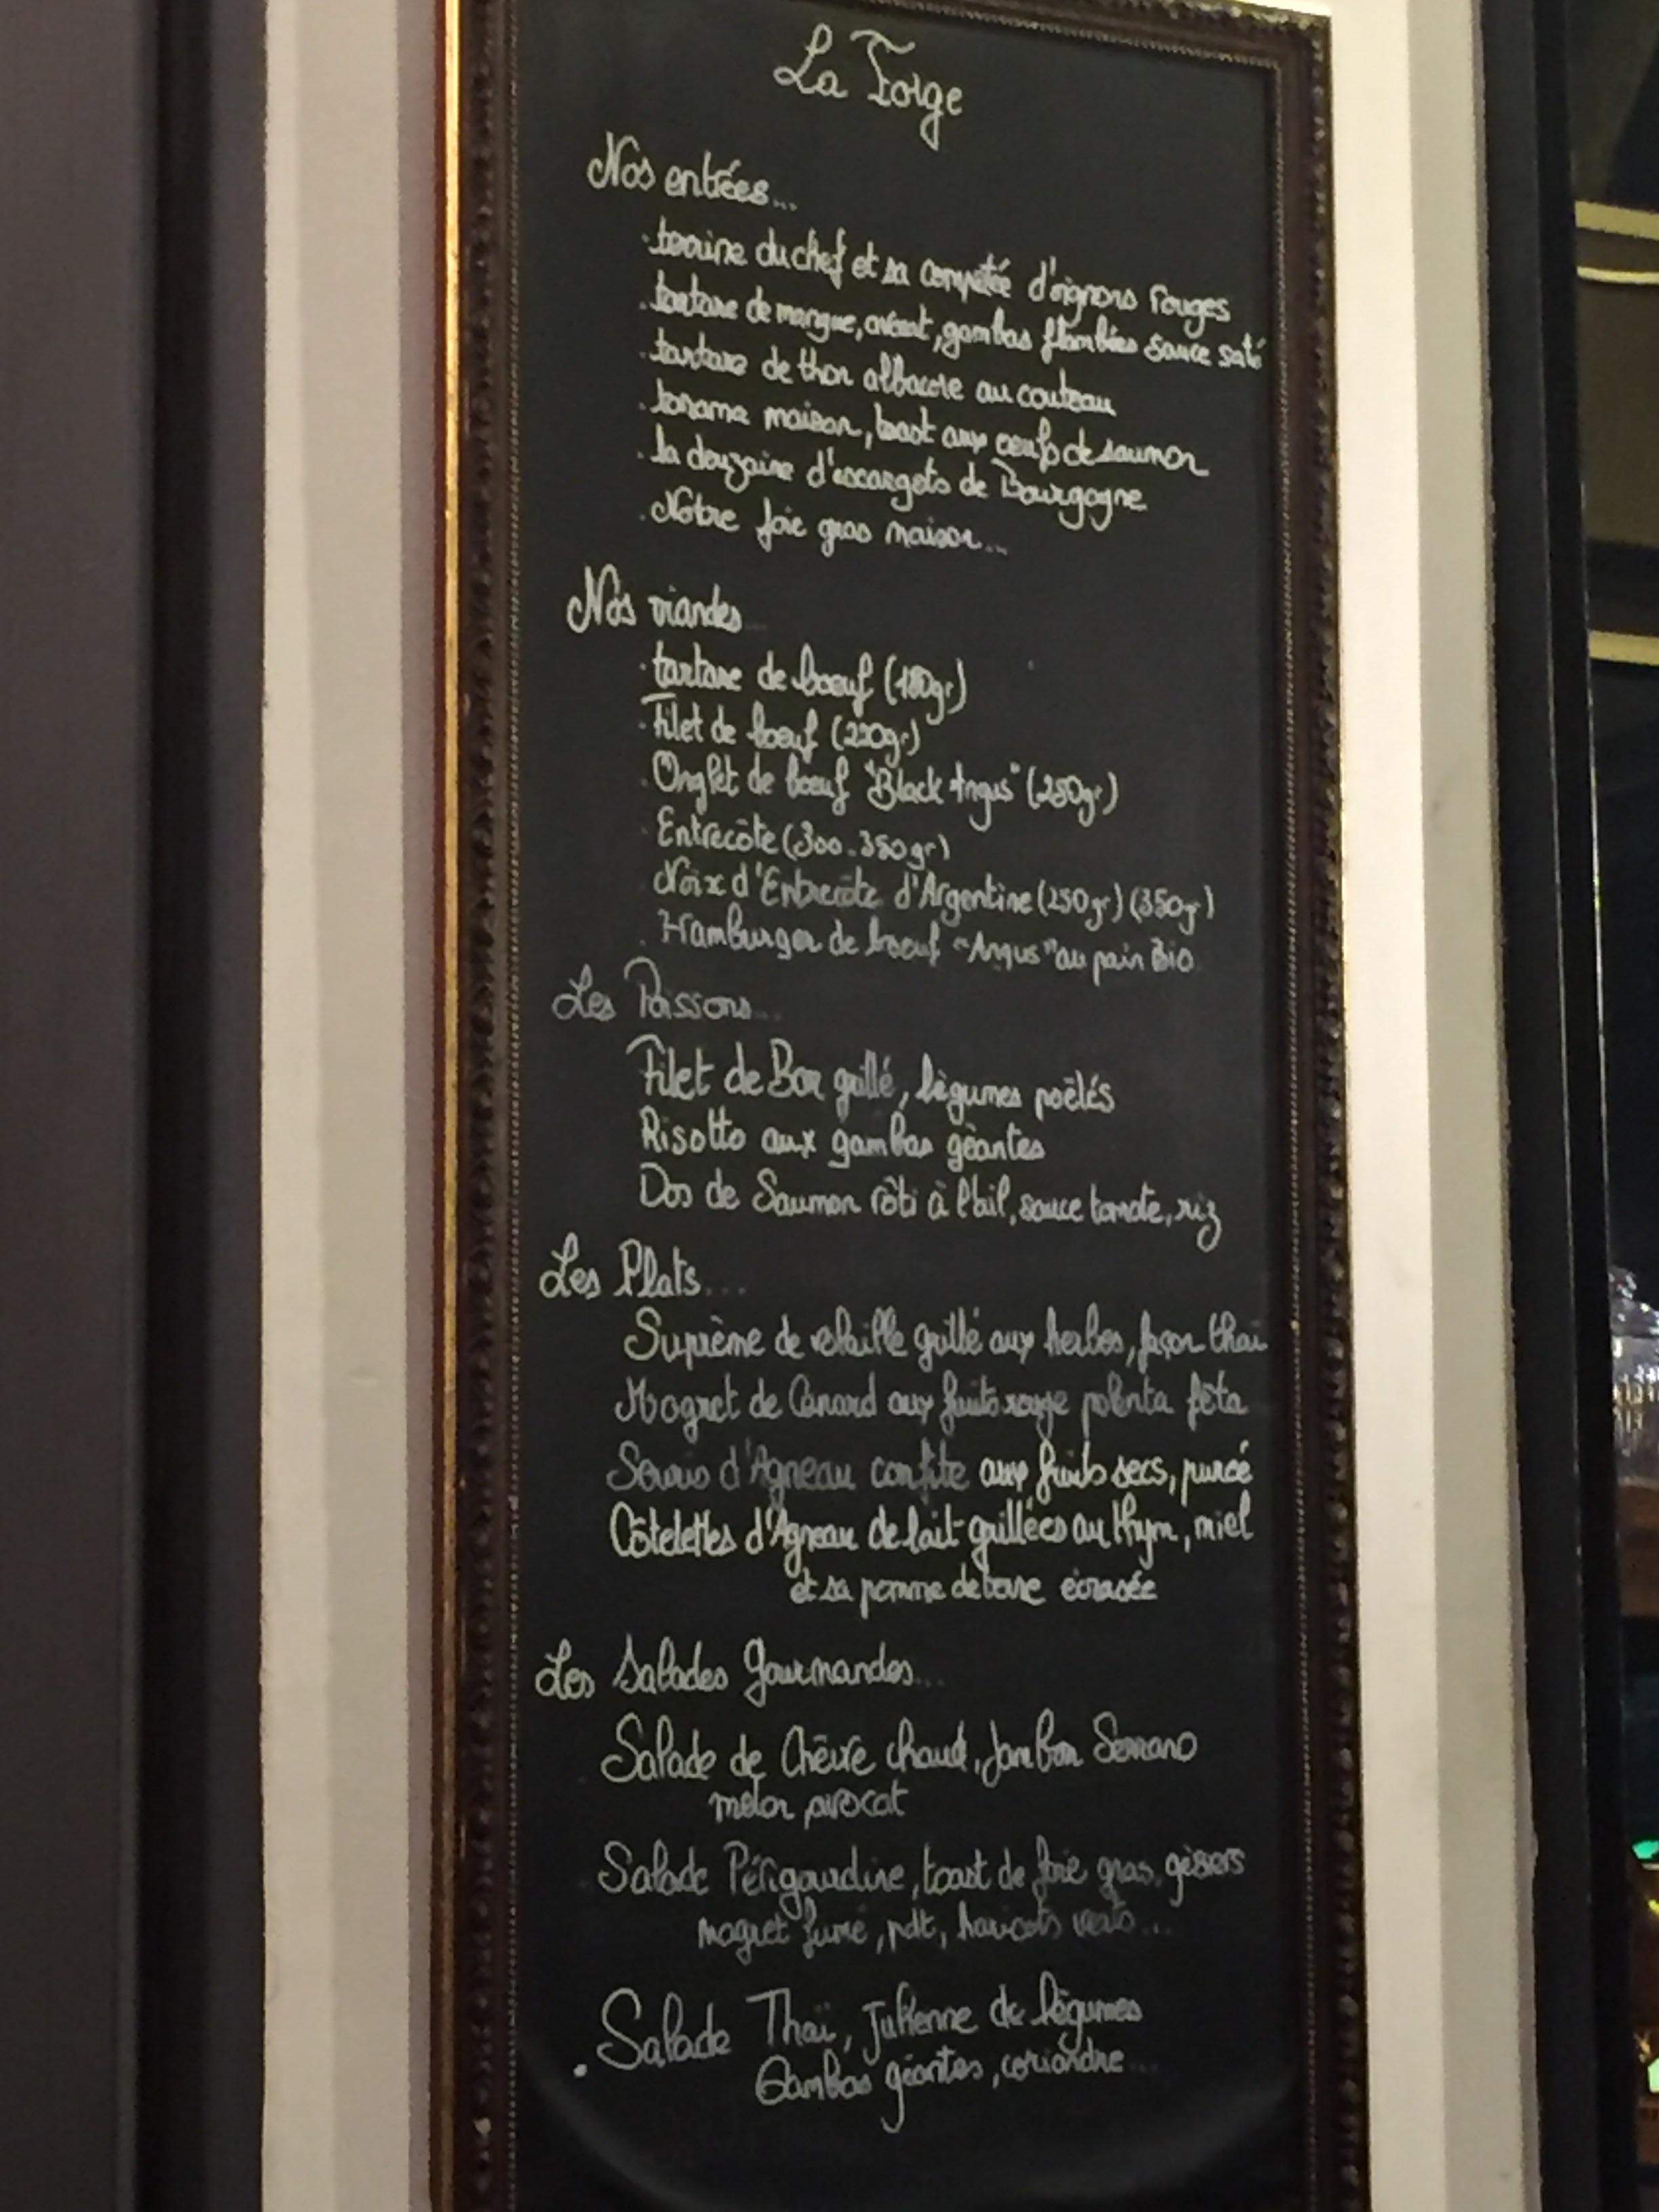 La Forge
Nos entrées...
. terrine du chef et sa compotée d'oignons rouges
. tartare de mangue, avocat, gambas flambées sauce saté
. tartare de thon albacore au couteau
. tarama maison, toast aux oeufs de saumon
. la douzaine d'escargots de Bourgogne
. Notre foie gras maison...
Nos viandes...
. tartare de boeuf (180gr)
. Filet de boeuf (220gr)
. Onglet de boeuf "Black Angus" (250gr)
. Entrecôte (300.350gr)
. Noix d'Entrecôte d'Argentine (250gr) (350gr)
. Hamburger de boeuf "Angus" au pain Bio
Les Poissons...
Filet de Bar grillé, légumes poêlés
Risotto aux gambas géantes
Dos de Saumon rôti à l'ail, sauce tomate, riz
Les Plats...
Suprême de volaille grillé aux herbes, façon thaï
Magret de Canard aux fruits rouge polenta féta
Souris d'Agneau confite aux fruits secs, purée
Côtelettes d'Agneau de lait grillées au thym, miel
et sa pomme de terre écrasée
Les Salades Gourmandes...
Salade de Chèvre chaud, Jambon Serrano
melon avocat
Salade Périgourdine, toast de foie gras, gésiers
magret fumé, pdt, haricots verts...
. Salade Thaï, Julienne de légumes
Gambas géantes, coriandre...